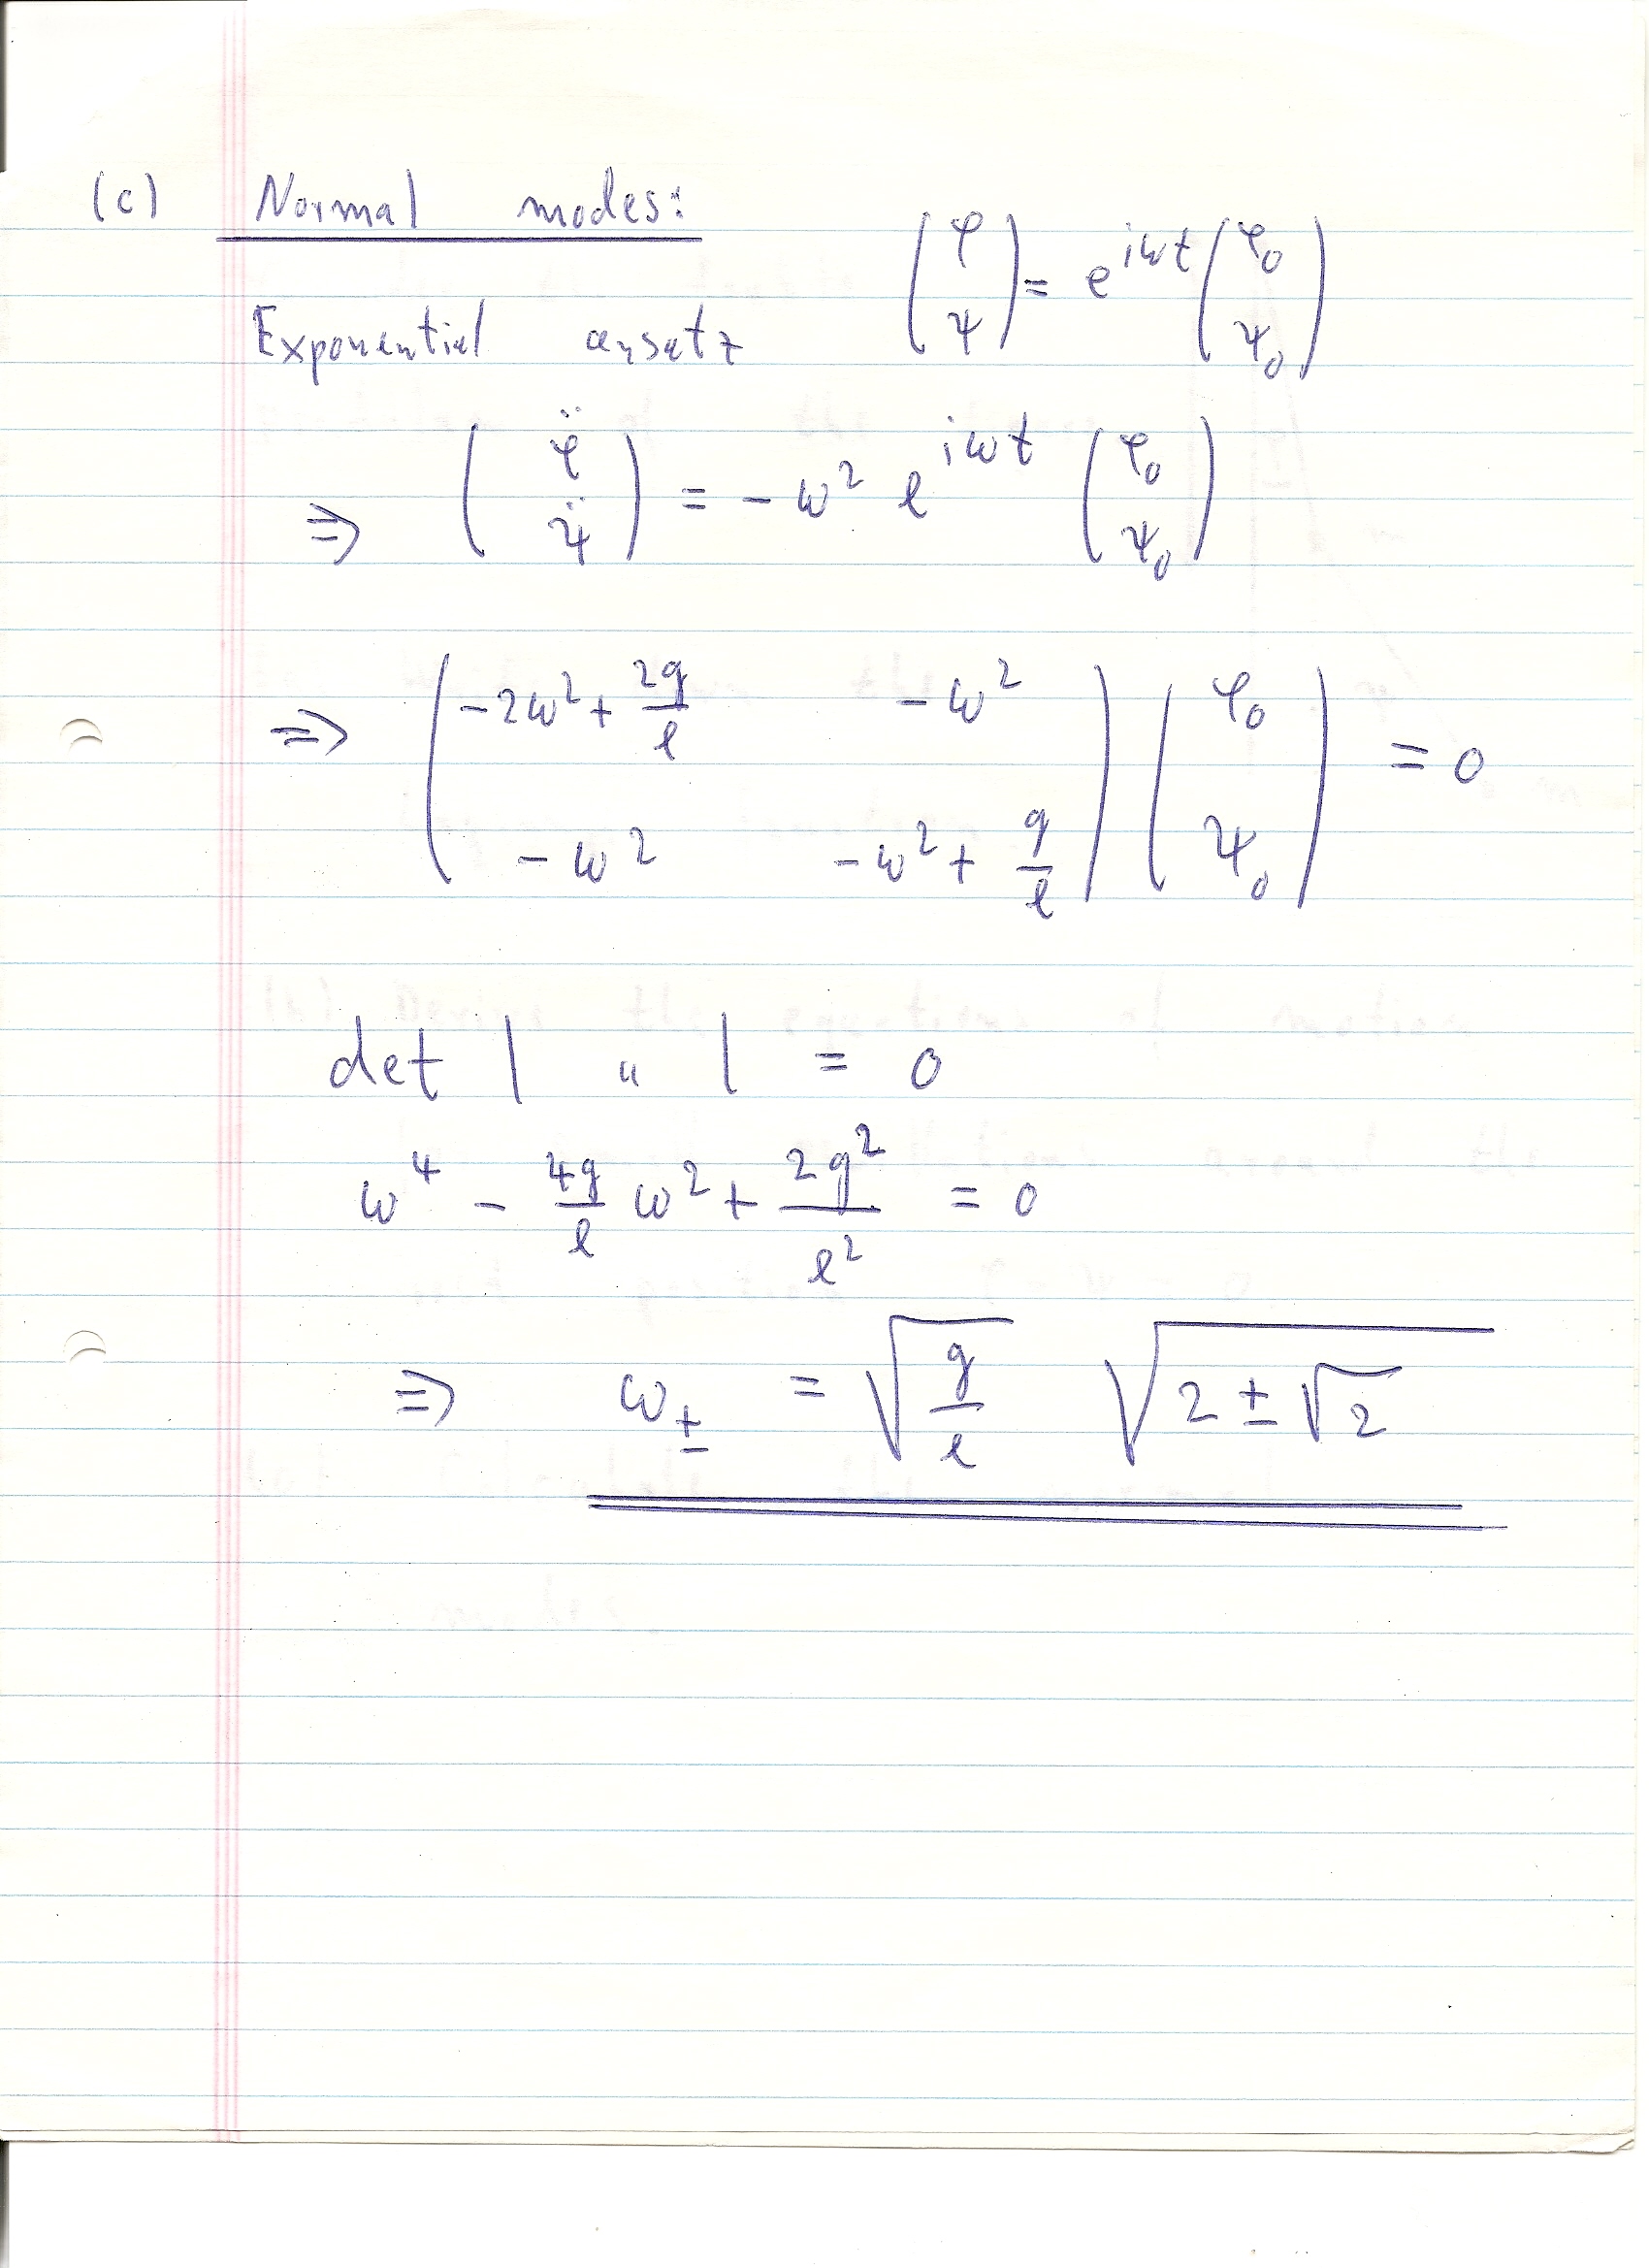 (c) Normal modes:
Exponential ansatz $\begin{pmatrix} \varphi \\ \psi \end{pmatrix} = e^{i\omega t} \begin{pmatrix} \varphi_0 \\ \psi_0 \end{pmatrix}$
$\Rightarrow \begin{pmatrix} \ddot{\varphi} \\ \ddot{\psi} \end{pmatrix} = -\omega^2 e^{i\omega t} \begin{pmatrix} \varphi_0 \\ \psi_0 \end{pmatrix}$
$\Rightarrow \begin{pmatrix} -2\omega^2 + \frac{2g}{\ell} & -\omega^2 \\ -\omega^2 & -\omega^2 + \frac{g}{\ell} \end{pmatrix} \begin{pmatrix} \varphi_0 \\ \psi_0 \end{pmatrix} = 0$
det | " | = 0
$\omega^4 - \frac{4g}{\ell} \omega^2 + \frac{2g^2}{\ell^2} = 0$
$\Rightarrow \omega_{\pm} = \sqrt{\frac{g}{\ell}} \sqrt{2 \pm \sqrt{2}}$